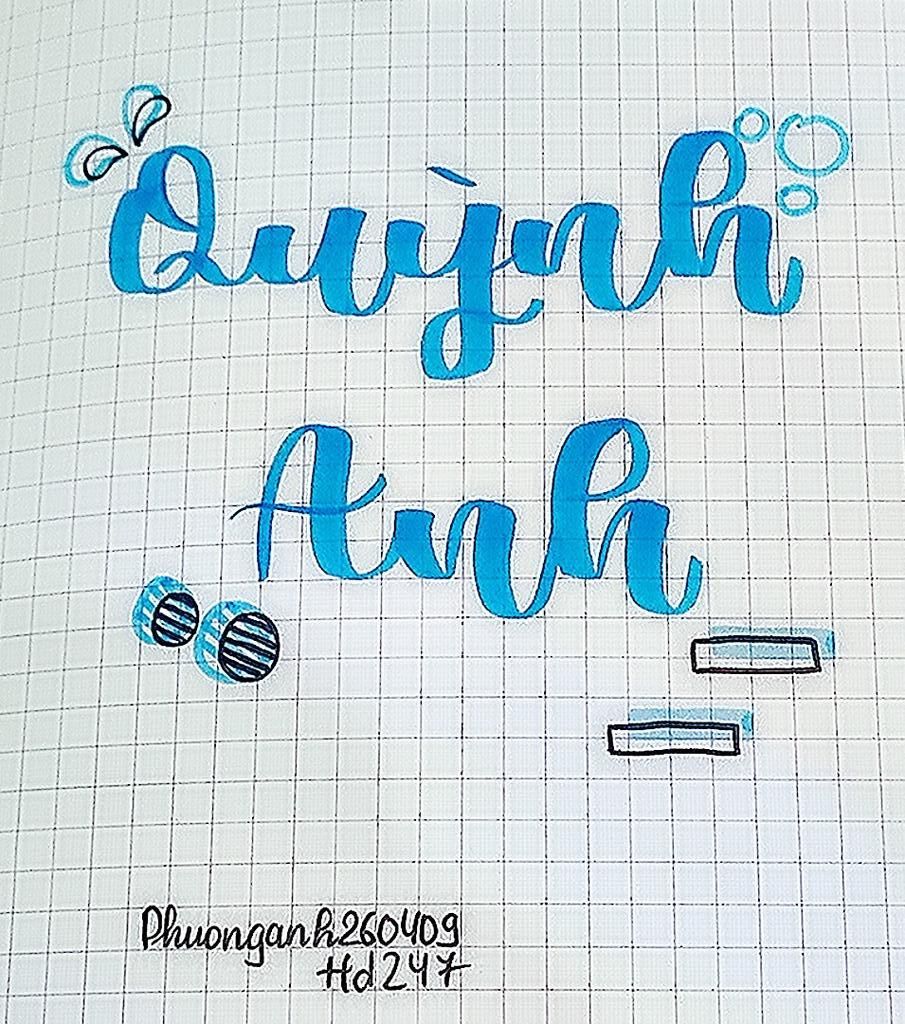 Quỳnh
Anh
Phuonganh260409
Hd247